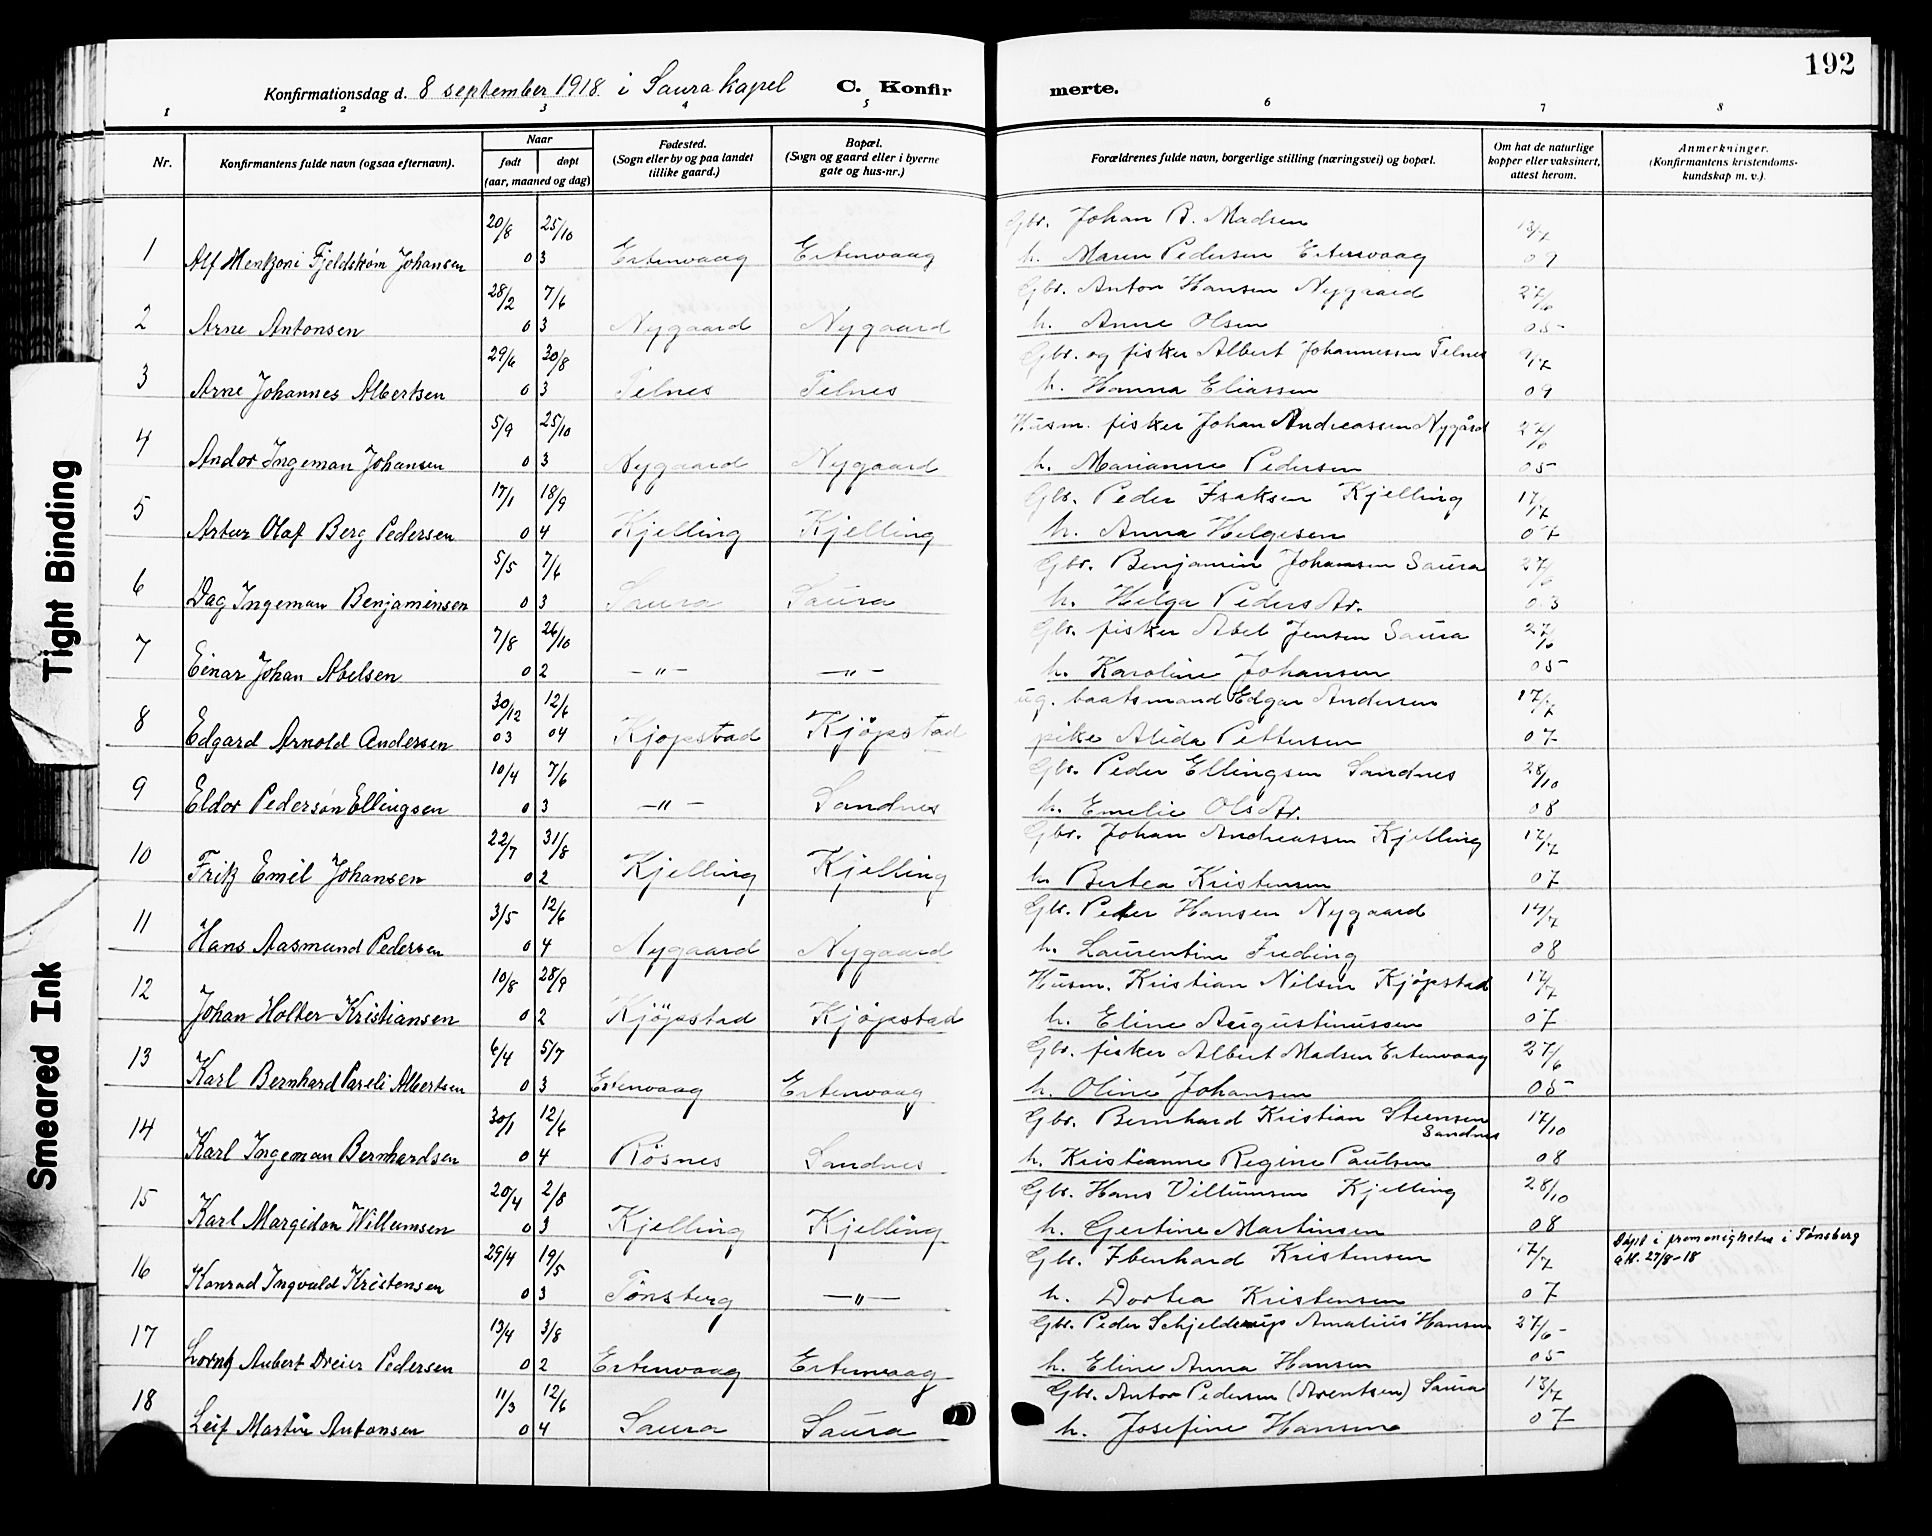 192
Konfirmationsdag d. 8 september 1918. i Saura kapel C. Konfirmerte.
1 2 3 4 5 6 7 8
Nr. Konfirmantens fulde navn (ogsaa efternavn). Naar født døpt (aar, maaned og dag) Fødested. (Sogn eller by og paa landet tillike gaard.) Bopæl. (Sogn og gaard eller i byerne gate og hus-nr.) Forældrenes fulde navn, borgerlige stilling (næringsvei) og bopæl. Om hat de naturlige kopper eller vaksinert, attest herom. Anmerkninger. (Konfirmantens kristendomskundskap m. v.).
20/8 25/10 Gbr. Johan B. Madsen
1 Alf Fjeldskom Johansen 03 Ertenvaag Ertenvaag h. Maren Pedersen Ertenvaag 09
28/2 7/6 Gbr. Anton Hansen Nygaard 27/6
2 Arne Antonsen 03 Nygaard Nygaard h. Anne Olsen 05
29/6 30/8 Gbr. og fisker Albert Johannessen Telnes 9/7
3 Arne Johannes Albertsen 03 Telnes Telnes h. Hanna Eliassen 09
5/9 25/10 Husm. fisker Johan Andreassen Nygård 27/6
4 Andor Ingeman Johansen 03 Nygaard Nygaard h. Marianne Pedersen 05
17/1 18/9 Gbr. Peder Isaksen Kjelling 17/7
5 Artur Olaf Berg Pedersen 04 Kjelling Kjelling h. Anna Helgesen 07
5/5 7/6 Gbr. Benjamin Johansen Saura 27/6
6 Dag Ingeman Benjaminsen 03 Saura Saura h. Helga Pedersdr. 03
7/8 26/10 Gbr. fisker Abel Jensen Saura 27/6
7 Einar Johan Abelsen 02 -"- -"- h. Karoline Johansen 05
30/12 12/6 ug. baatsmand Edgar Andersen 17/7
8 Edgard Arnold Andersen 03 04 Kjøpstad Kjøpstad pike Alida Pettersen 07
10/4 7/6 Gbr. Peder Ellingsen Sandnes 28/10
9 Eldor Pederson Ellingsen 03 -"- Sandnes h. Emelie Olsdr. 08
22/7 31/8 Gbr. Johan Andreassen Kjelling 17/7
10 Fritz Emil Johansen 02 Kjelling Kjelling h. Bertea Kristensen 07
3/5 12/6 Gbr. Peder Hansen Nygaard 14/7
11 Hans Aasmund Pedersen 04 Nygaard Nygaard h. Laurentine Freding 08
10/8 28/9 Husm. Kristian Nilsen Kjøpstad 17/7
12 Johan Holter Kristiansen 02 Kjøpstad Kjøpstad h. Eline Augustinussen 07
6/4 5/7 Gbr. fisker Albert Madsen Ertenvaag 27/6
13 Karl Bernhard Pareli Albertsen 03 Ertenvaag Ertenvaag h. Oline Johansen 05
30/1 12/6 Gbr. Bernhard Kristian Steensen Sandnes 17/10
14 Karl Ingeman Bernhardsen 04 Røsnes Sandnes h. Kristianne Regine Paulsen 08
20/4 2/8 Gbr. Hans Villumsen Kjelling 28/10
15 Karl Margidon Willumsen 03 Kjelling Kjelling h. Gertine Martinsen 08
29/4 19/5 Gbr. Ebenhard Kristensen 17/7 Døpt i i Tønsberg
att. 27/8-18
16 Konrad Ingvald Kristensen 03 Tønsberg -"- h. Dortea Kristensen 07
13/4 3/8 Gbr. Peder Schjelderup Amalius Hansen 27/6
17 Lorntz Aubert Dreier Pedersen 02 Ertenvaag Ertenvaag h. Eline Anna Hansen 05
11/3 12/6 Gbr. Anton Pedersen (Arentsen) Saura 13/7
18 Leif Martin Antonsen 04 Saura Saura h. Josefine Hansen 07
Tight Binding
Smeared Ink